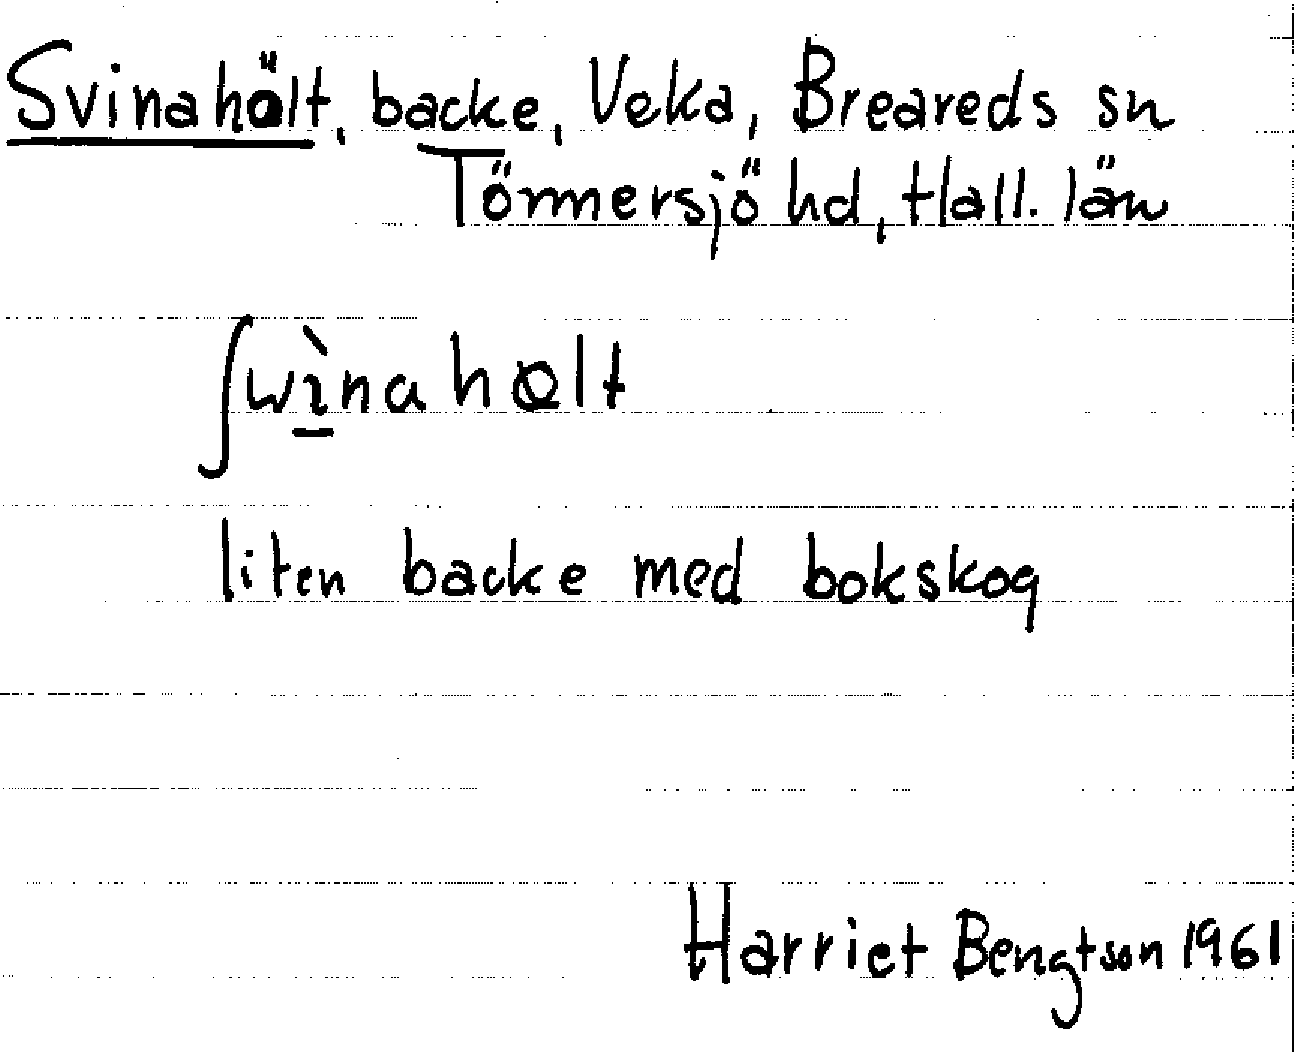 Svinahölt, backe, Veka, Breareds sn
Tönnersjö hd, Hall. län
ʃwı̀nahɵlt
liten backe med bokskog
Harriet Bengtson 1961